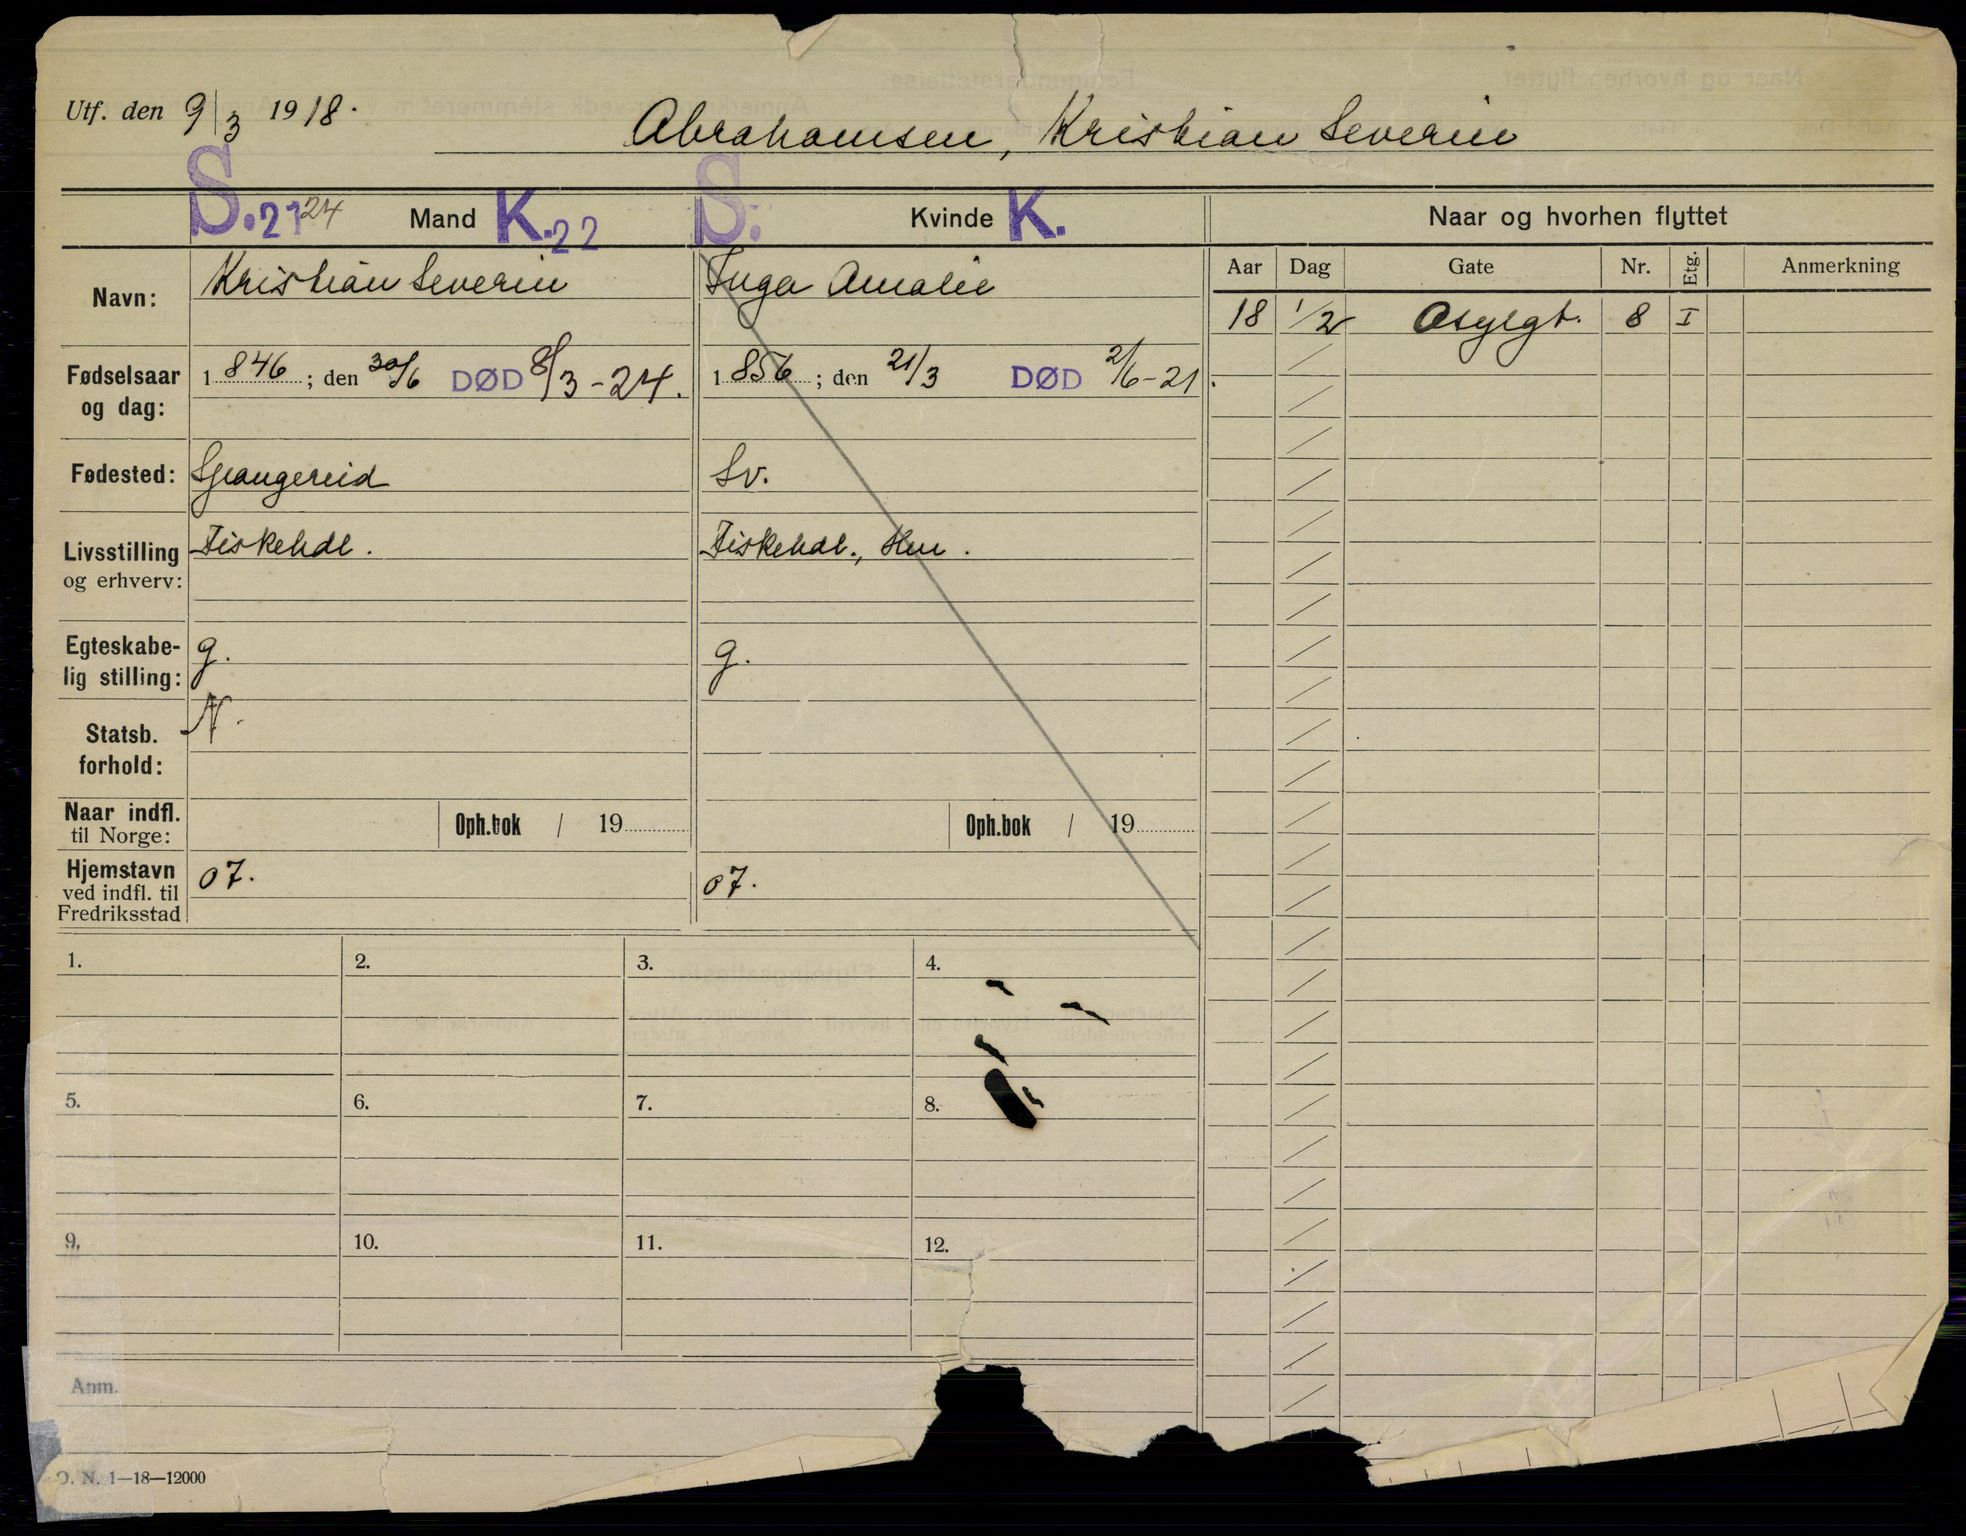 Utf. den 9/3 1918.
Abrahamsen, Kristian Severin
S. 21 24 Mand K. 22 S. Kvinde K. Naar og hvorhen flyttet
Aar Dag Gate Nr. Etg. Anmerkning
Navn: Kristian Severin Inga Amalie
18 1/2 Asylgt. 8 I
Fødselsaar og dag: 1846; den 30/6 DØD 8/3-24. 1856; den 21/3 DØD 2/6-21.
Fødested: Spangereid Sv.
Livsstilling Fiskehdl. Fiskehdl., Hu.
og erhverv:
Egteskabe- g. g.
lig stilling:
Statsb. N.
forhold:
Naar indfl. Oph.bok / 19 Oph.bok / 19
til Norge:
Hjemstavn 07. 07.
ved indfl. til
Fredriksstad
1. 2. 3. 4.
5. 6. 7. 8.
9. 10. 11. 12.
Anm.
O. N. 1—18—12000